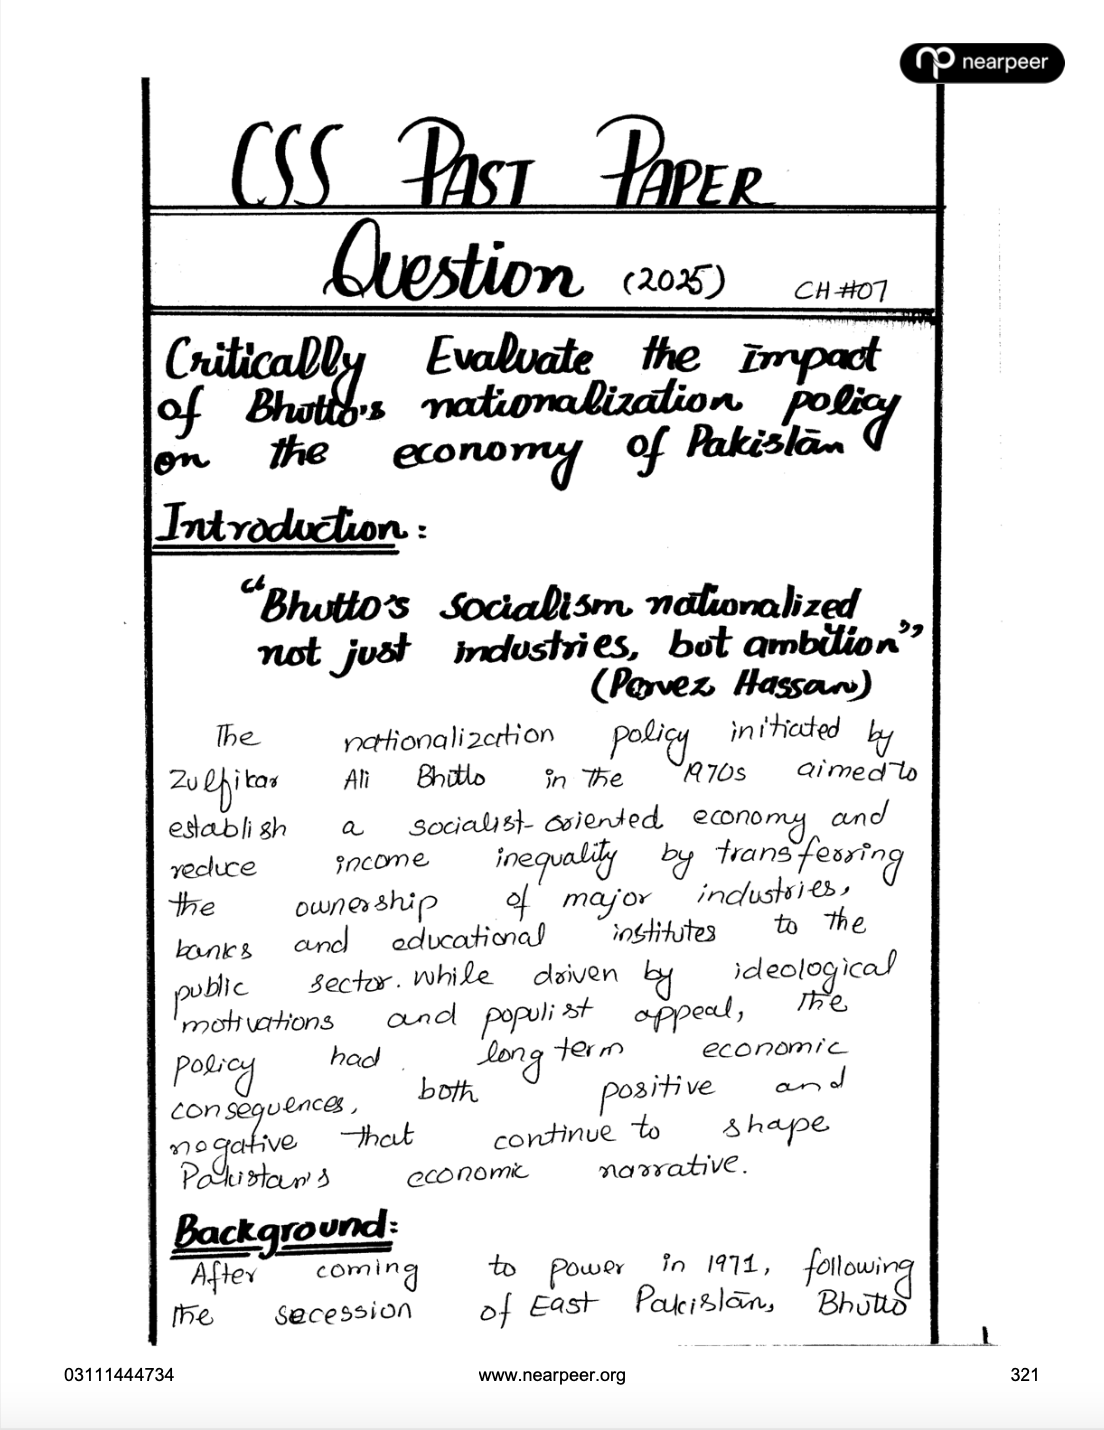 nearpeer
CSS PAST PAPER
Question (2025) CH#07
Critically Evaluate the impact
of Bhutto's nationalization policy
on the economy of Pakistān
Introduction:
"Bhutto's socialism nationalized
not just industries, but ambition"
(Pervez Hassan)
The nationalization policy initiated by
Zulfikar Ali Bhutto in the 1970s aimed to
establish a socialist-oriented economy and
reduce income inequality by transferring
the ownership of major industries,
banks and educational institutes to the
public sector. while driven by ideological
motivations and populist appeal, the
policy had long term economic
consequences, both positive and
negative that continue to shape
Pakistan's economic narrative.
Background:
After coming to power in 1971, following
the secession of East Pakistān, Bhutto
03111444734 www.nearpeer.org 321